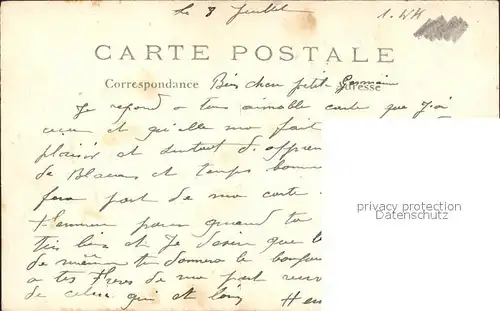 Le 8 Juillet
1. WK
CARTE POSTALE
Correspondance Adresse
Bien cher petit Germain
Je repond a tous aimable carte que J'ai
reçue et qu'elle ma fait
plaisir et surtout d. appren
de et temps bonne
fera part de ma carte
quand tu
très bien et Je desire que
de même tu donnera le bonjour
a tes Freres de ma part
de celui qui et loin Hen
privacy protection
Datenschutz